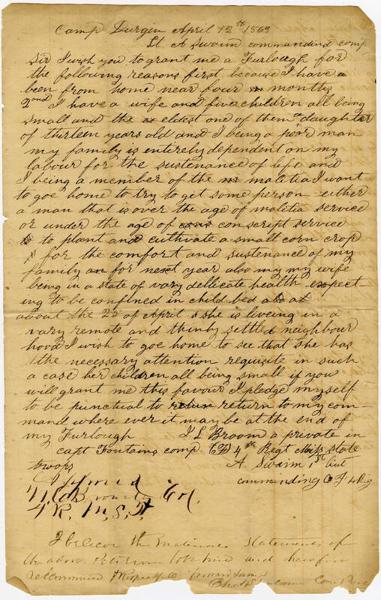 Camp Durgin April 12th 1863
Lt A Swaim commanding comp
Sir I wish you to grant me a Furlough for
the following reasons first because I have a
been from home near four months
2nd I have a wife and five children all being
small and the eldest one of them a daughter
of thirteen years old and I being a poor man
my family is entirely dependent on my
labour for the sustenance of life and
I being a member of the malitia I want
to goe home to try to get some person either
a man that is over the age of malitia service
or under the age of conscript service
to plant and cultivate a small corn crop
for the comfort and sustenance of my
family for next year also my wife
being in a state of vary delicate health expect
ing to be confined in child bed at
about the 22d of April & she is liveing in a
vary remote and thinly settled neighbour
hood I wish to goe home to see that she has
the necessary attention requisite in such
a case her children all being small if you
will grant me this favour I pledge myself
to be punctual to return to my com
mand where ever it may be at the end of
my Furlough J L Broom a private in
capt Fontains comp 4th Regt Miss State
troops A Swaim 1st Lieut
commanding Co 4 Reg
Approved
Col
4 R. M. S. T
I believe the statements of
the above petition and therefore
recommend